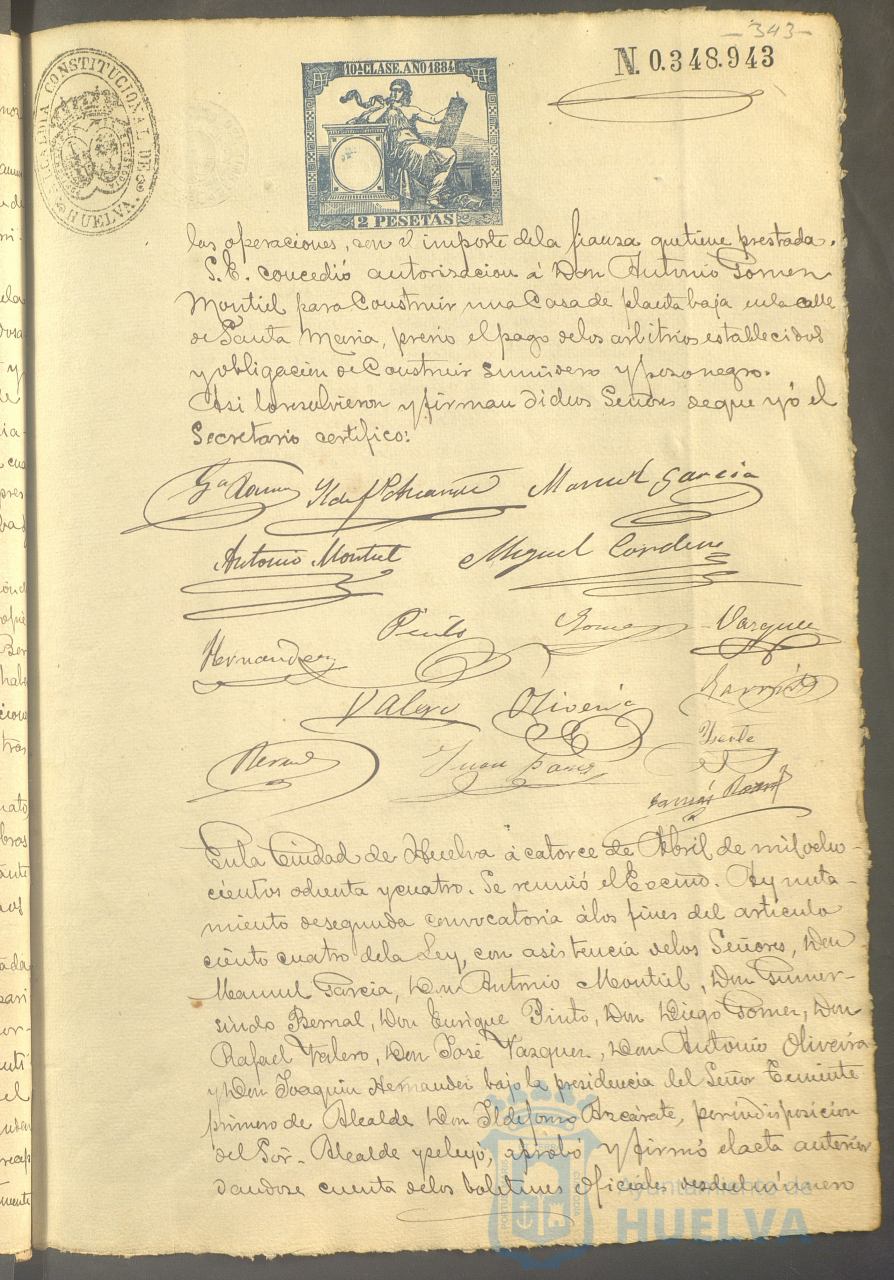 -343-
N. 0.348.943
ALCALDIA CONSTITUCIONAL DE HUELVA
10ª CLASE. AÑO 1884
2 PESETAS
las operaciones, con el importe dela fianza que tiene prestada.
S. E. concedió autorizacion á Don Antonio Gomez
Montiel para Construir una Casa de planta baja en la calle
de Santa Maria, prévio el pago delos arbitrios establecidos
y obligación de Construir sumidero y pozo negro.
Asi lo resolvieron y firman dichos Señores de que yó el
Secretario certifico:
Manuel Garcia
Antonio Montiel Miguel Cordero
Hernandez Pinto Gomez Vazquez
Valero Oliveira
Bernal Juan
En la Ciudad de Huelva á catorce de Abril de mil ocho-
cientos ochenta y cuatro. Se reunió el Excmo. Ayunta-
miento de segunda convocatoria álos fines del articulo
ciento cuatro dela Ley, con asistencia delos Señores, Don
Manuel Garcia, Don Antonio Montiel, Don Gumer-
sindo Bernal, Don Enrique Pinto, Don Diego Gomez, Don
Rafael Valero, Don José Vazquez, Don Antonio Oliveira
y Don Joaquin Hernandez bajo la presidencia del Señor Teniente
primero de Alcalde Don Ildefonso Azcárate, por indisposicion
del Sor. Alcalde y se leyó, aprobó y firmó el acta anterior
dandose cuenta delos boletines oficiales desde el número
Ayuntamiento de
HUELVA